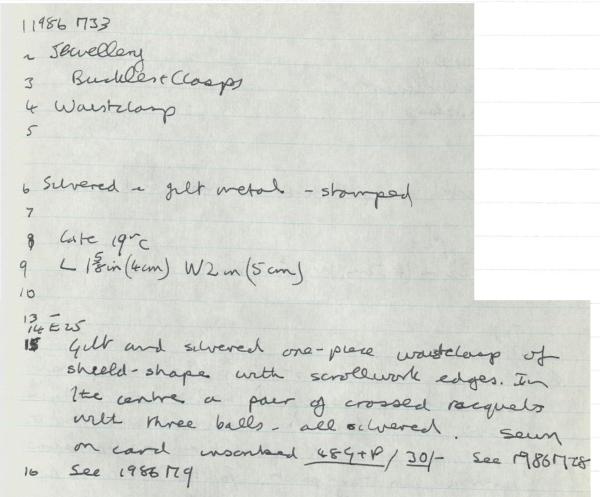 1 1986 M33
2 Jewellery
3 Buckles + Clasps
4 Waistclasp
5
6 Silvered & gilt metal - stamped
7
8 Late 19th C
9 L 1 5/8 in (4cm) W 2 in (5 cm)
10
13 -
14 E25
15 Gilt and silvered one-piece waistclasp of
shield-shape with scrollwork edges. In
the centre a pair of crossed racquets
with three balls - all silvered. Sewn
on card inscribed 48G+P / 30/- See 1986 M28
16 See 1986 M9